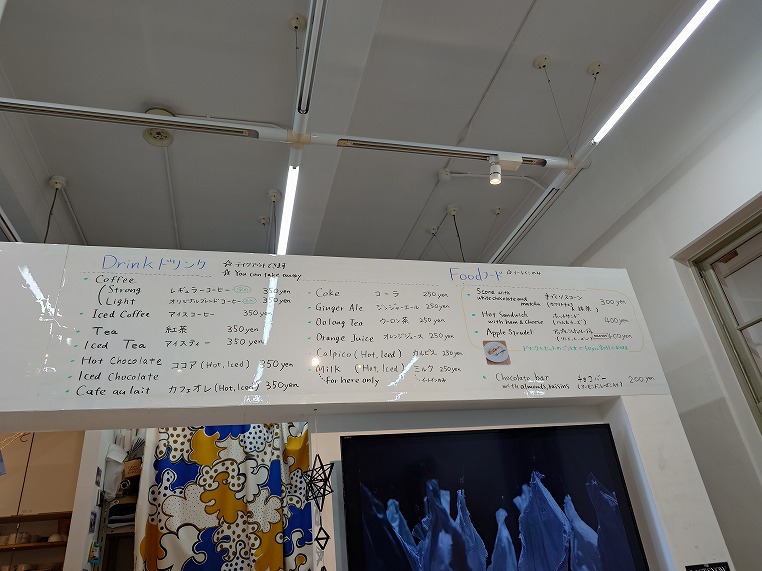 Drink ドリンク ☆ テイクアウトできます
☆ You can take away
Coffee
Strong レギュラーコーヒー 350yen
Light オリジナルブレンドコーヒー 350yen
Iced Coffee アイスコーヒー 350yen
Tea 紅茶 350yen
Iced Tea アイスティー 350yen
Hot Chocolate ココア (Hot, Iced) 350yen
Iced Chocolate
Cafe au lait カフェオレ (Hot, Iced) 350yen
Coke コーラ 250yen
Ginger Ale ジンジャーエール 250yen
Oolong Tea ウーロン茶 250yen
Orange Juice オレンジジュース 250yen
Calpico (Hot, Iced) カルピス 250yen
Milk (Hot, Iced) ミルク 250yen
*for here only
Food フード
Scone with
white chocolate and matcha 300yen
Hot Sandwich
with ham & cheese 400yen
Apple Strudel
Chocolate bar チョコバー 200yen
with almonds, raisins